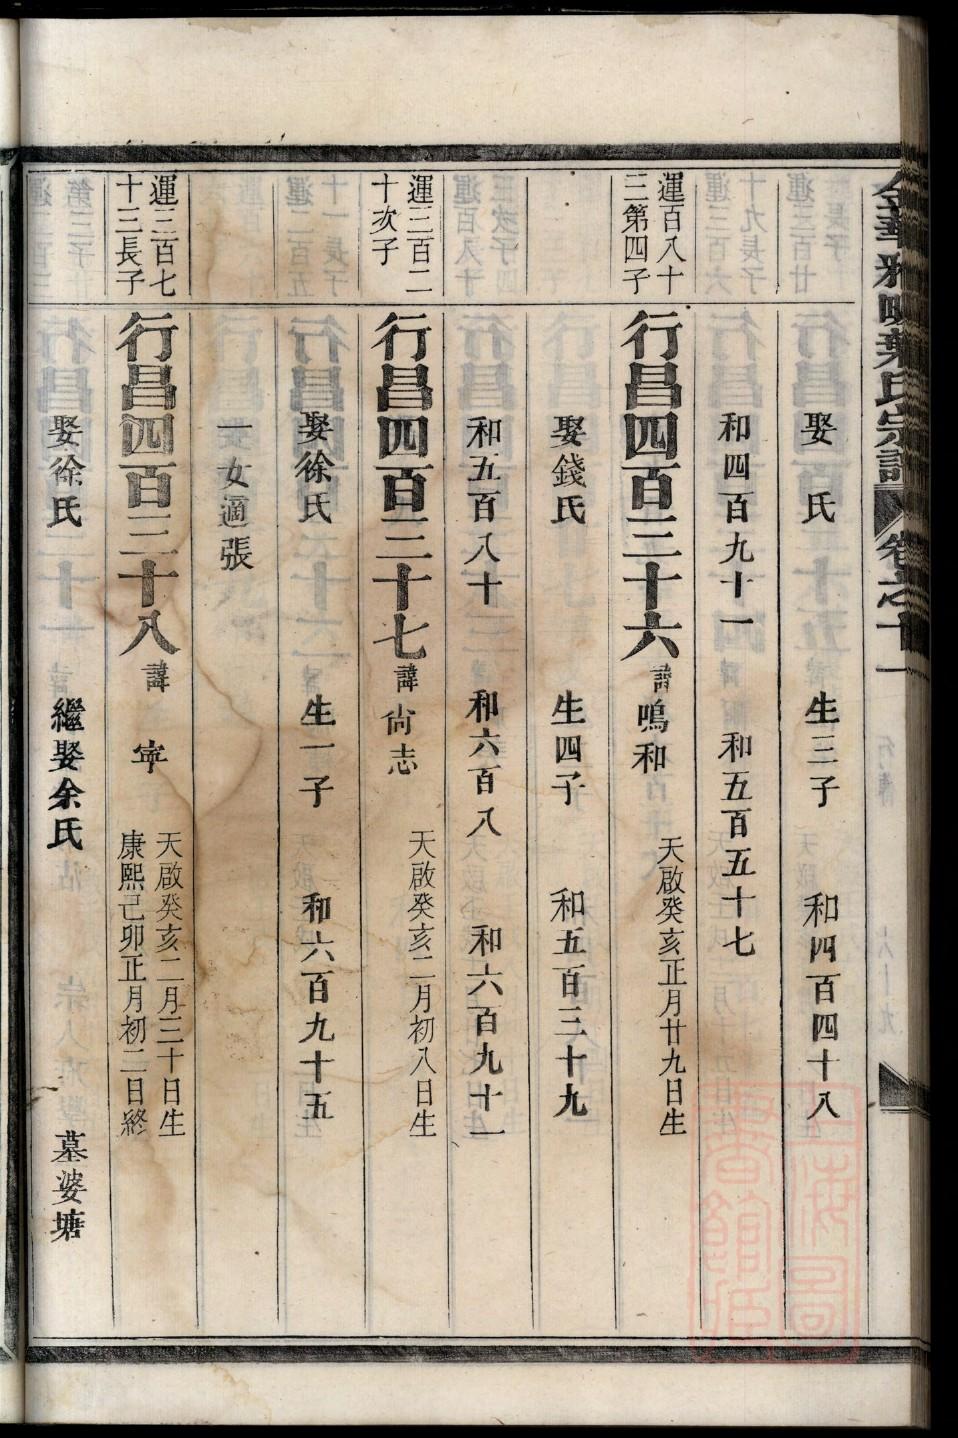 金華雅畈葉氏宗譜 卷之十一
娶 氏 生三子 和四百四十八
和四百九十一 和五百五十七
運百八十三第四子
行昌四百三十六 諱鳴和 天啟癸亥正月廿九日生
娶錢氏 生四子 和五百三十九
和五百八十 和六百八 和六百九十一
運三百二十次子
行昌四百三十七 諱尚志 天啟癸亥二月初八日生
娶徐氏 生一子 和六百九十五
一女適張
運三百七十三長子
行昌四百三十八 諱寧 天啟癸亥二月三十日生
康熙己卯正月初二日終
娶徐氏 繼娶余氏 墓婆塘